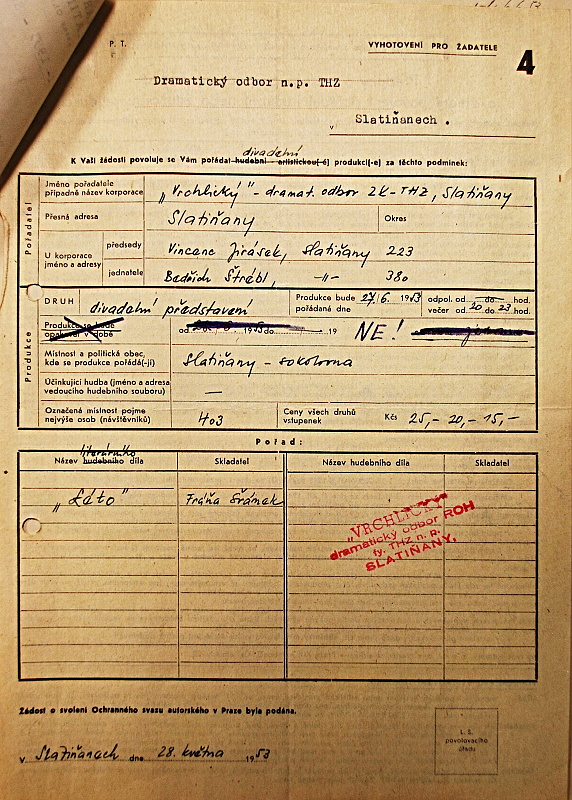 P. T.
VYHOTOVENÍ PRO ŽADATELE
4
Dramatický odbor n.p. THZ
v Slatiňanech .
divadelní
K Vaší žádosti povoluje se Vám pořádat hudební - artistickou(-é) produkci(-e) za těchto podmínek:
Pořadatel
Jméno pořadatele případně název korporace
„Vrchlický" - dramat. odbor ZK-THZ, Slatiňany
Přesná adresa
Slatiňany
Okres
U korporace jméno a adresy
předsedy
Vincenc Jirásek, Slatiňany 223
jednatele
Bedřich Štrébl, -"- 380
Produkce
DRUH
divadelní představení
Produkce bude pořádána dne 27/6. 1953
odpol. od — do — hod.
večer od 20 do 23 hod.
Produkce se bude opakovat v době
od do 19
NE!
Místnost a politická obec, kde se produkce pořádá(-jí)
Slatiňany - sokolovna
Účinkující hudba (jméno a adresa vedoucího hudebního souboru)
—
Označená místnost pojme nejvýše osob (návštěvníků)
403
Ceny všech druhů vstupenek
Kčs 25,- 20,- 15,-
Pořad:
literárního
Název hudebního díla
Skladatel
Název hudebního díla
Skladatel
„Léto"
Fráňa Šrámek
„VRCHLICKÝ"
dramatický odbor ROH
fy. THZ n. p.
SLATIŇANY,
Žádost o svolení Ochranného svazu autorského v Praze byla podána.
v Slatiňanech dne 28. května 1953
L. S.
povolovacího
úřadu